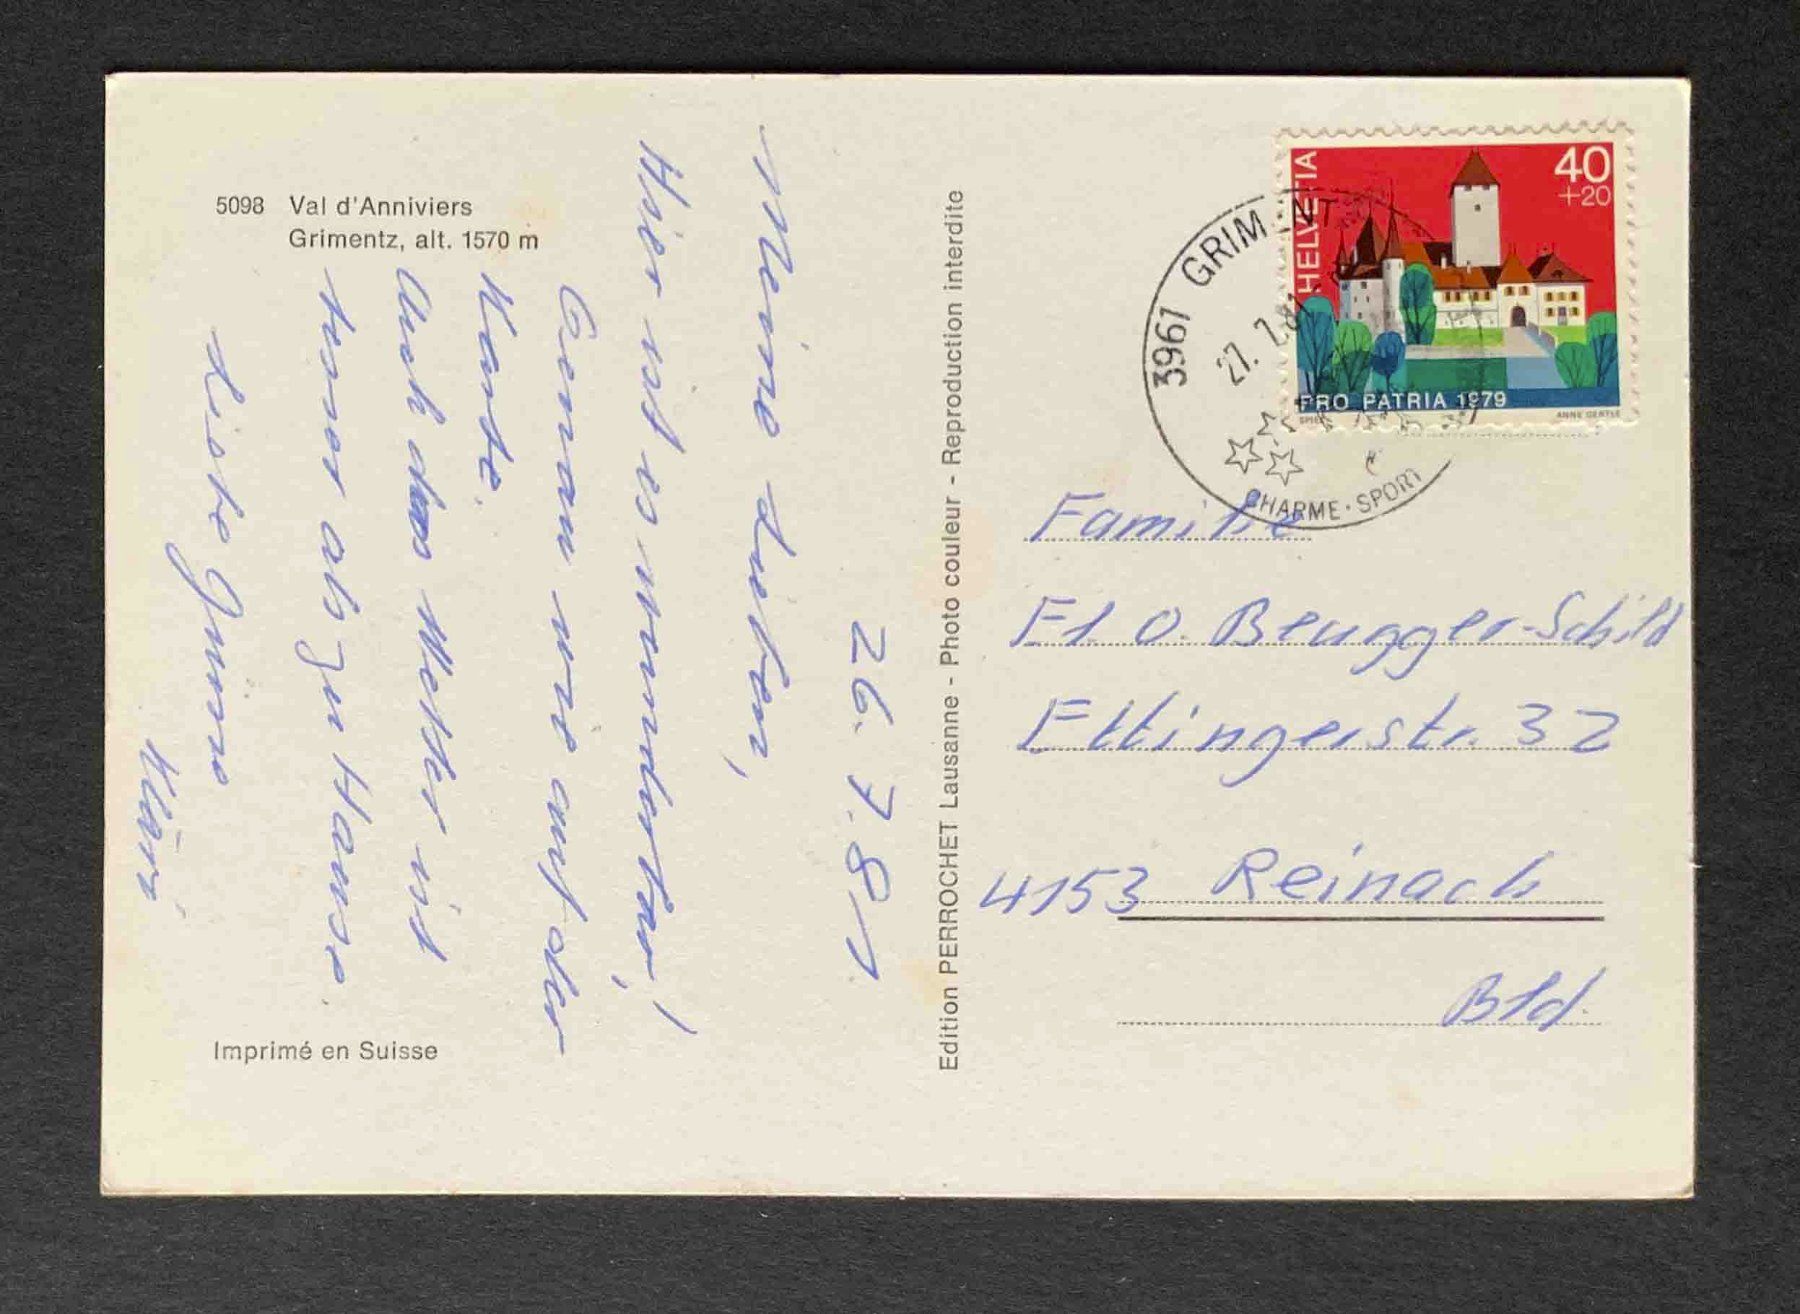 5098 Val d'Anniviers
Grimentz, alt. 1570 m
26. 7. 81.
Meine Lieben,
Hier ist es wunderbar!
Genau wie auf der
Karte.
Auch das Wetter ist
besser als zu Hause.
Liebe Grüsse
Kläri
Imprimé en Suisse
Edition PERROCHET Lausanne - Photo couleur - Reproduction interdite
HELVETIA
40
+20
PRO PATRIA 1979
3961 GRIMENT
27. 7. 81
CHARME · SPORT
Familie
O. Beugger-Schild
Ettingerstr. 32
4153 Reinach
Bld.